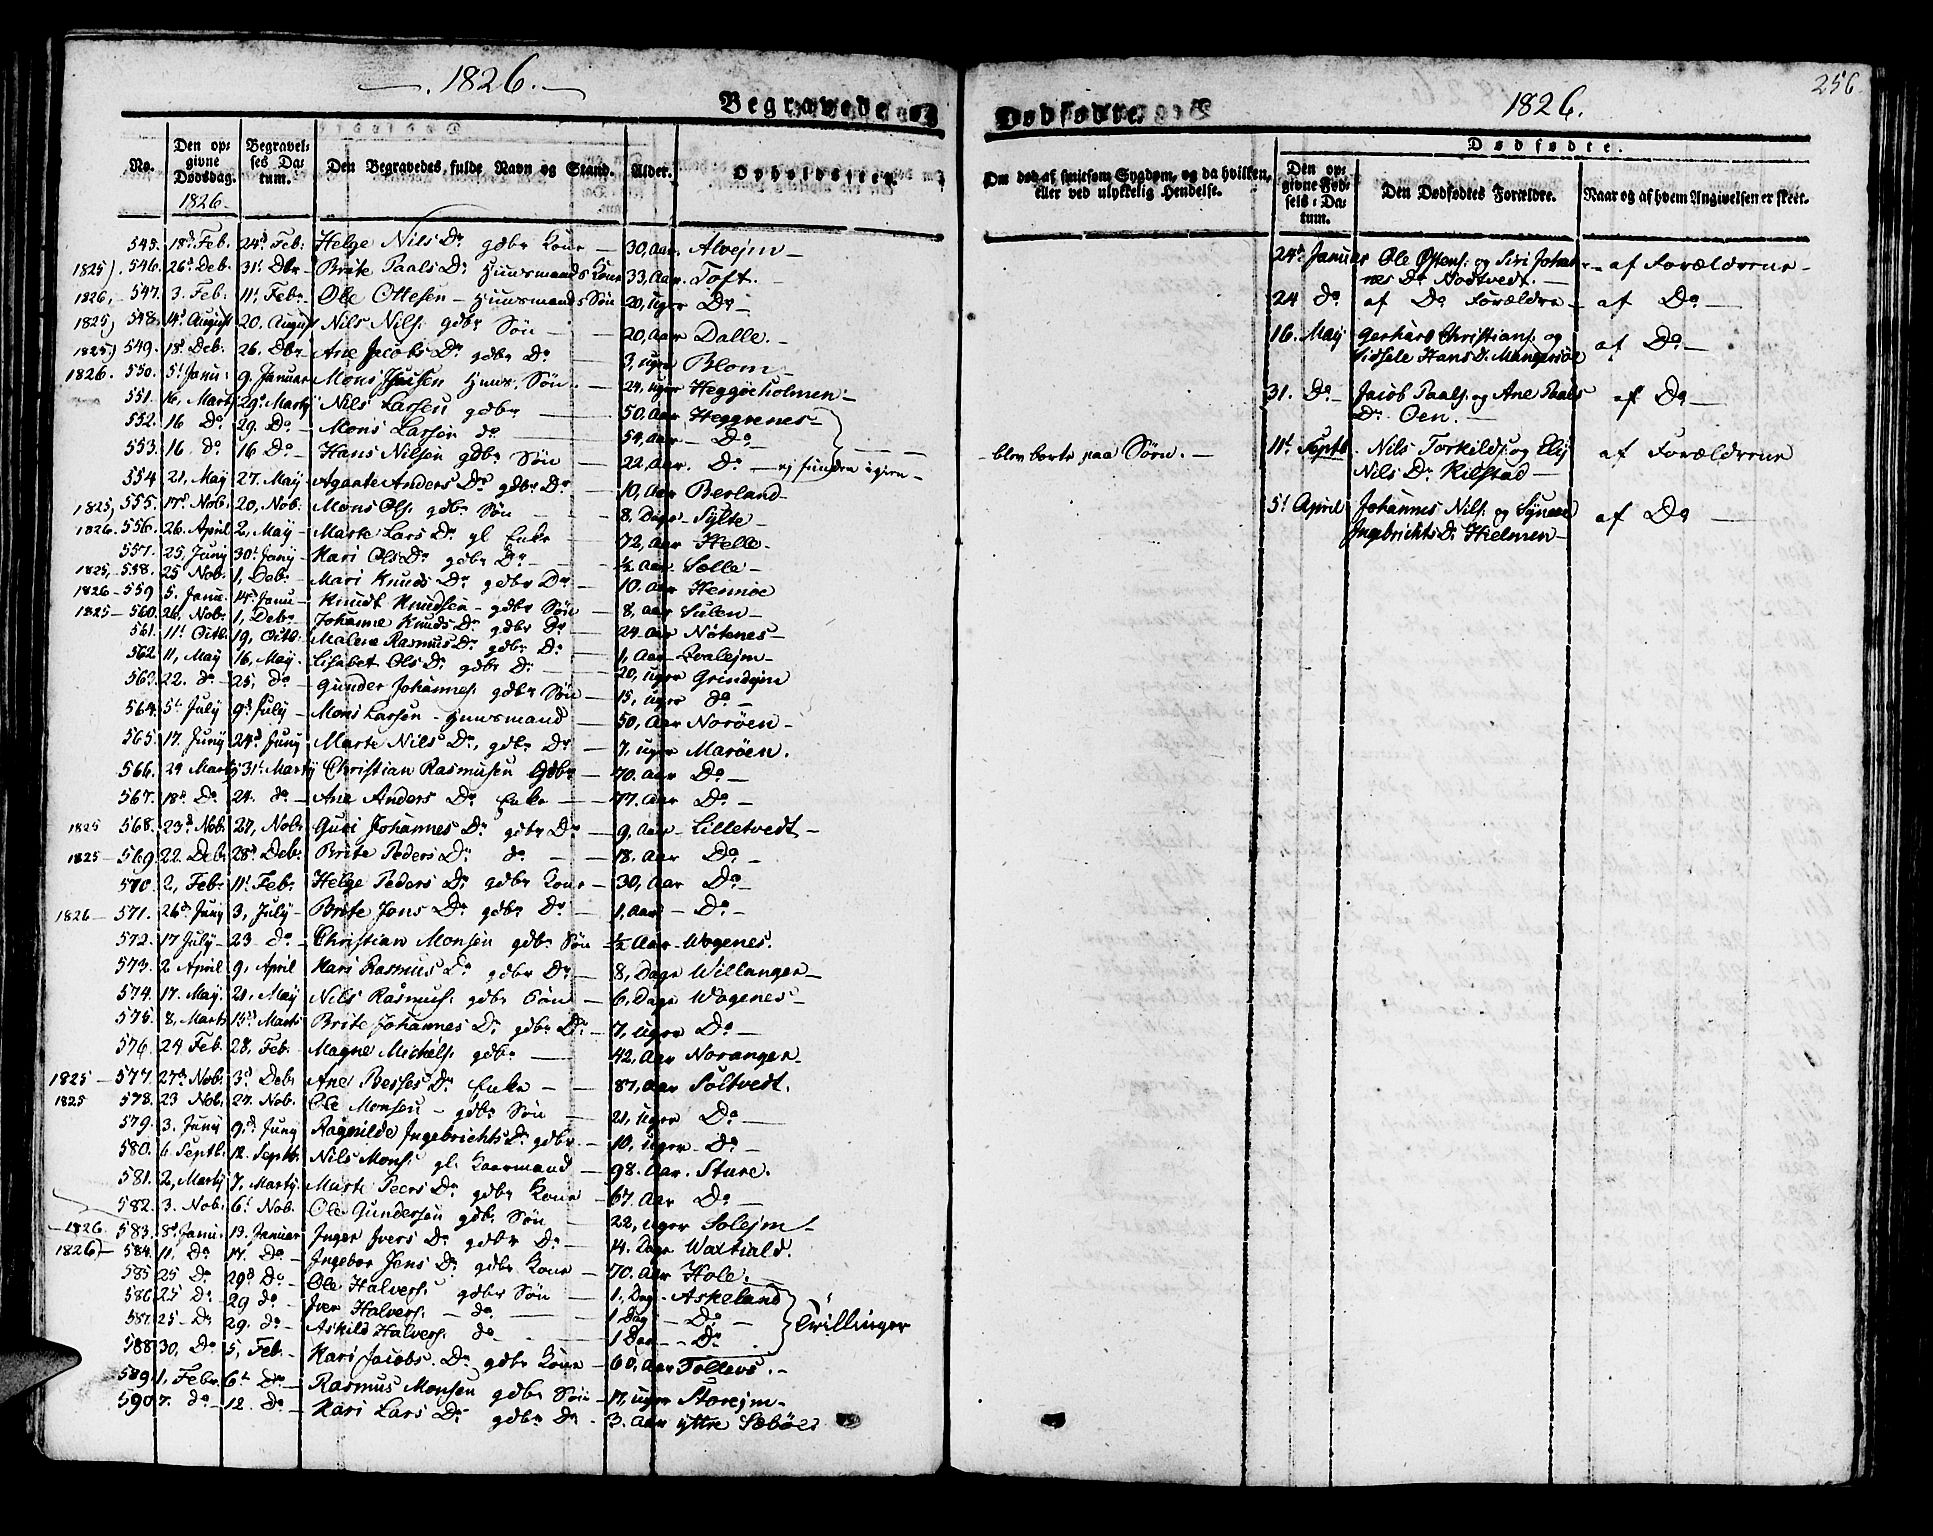 1826.
Begravede og
No.
Den opgivne Dødsdag.
Begravelses Datum.
Den Begravedes fulde Navn og Stand.
Alder.
Opholdssted.
1826
545. 18d Feb. 24d Feb: Helge Nils Dr. gdbr Kone — 30, Aar. Alvejm —
1825) 546. 26d Deb. 31t Dbr — Brite Paals Dr. Huusmands Kone 33, Aar. Toft. —
1826, 547. 3. Feb. 11t Febr. Ole Ottesen — Huusmands Søn 20, uger Do —
1825) 548. 14d August 20. August Nils Nils. gdbr Søn — 20, Aar Dalle. —
1825) 549. 18d Deb. 26. Dbr — Ane Jacobs Dr gdbr Dr — 3, uger Blom —
1826. 550. 5t Janu. 9. Januar Mons Huus. Søn. — 24, uger Heggøeholmen —
551. 16, Marty 29d Marty Nils Larsen gdbr — 50. Aar Heggrenes —
552. 16 Do 29. Do — Mons Larsen do — 54, Aar — Do —
553. 16 do 16 Do — Hans Nilsen gdbr Søn — 22, Aar. Do — ej funden igien —
554 21, May 27. May Agaate Anders Dr gdbr Dr — 10, Aar Berland —
1825) 555. 17d Nob. 20, Nob. Mons Ols. gdbr Søn — 8, Dage — Sylte —
1826. 556. 26. April 2, May — Marte Lars Dr gl Enke — 72, Aar Helle —
557. 25, Juny 30t Juny — Kari Ols Dr gdbr Dr — ½ Aar. Sælle —
1825, 558. 25 Nob. 1, Deb. — Mari Knuds Dr gdbr Dr — 10. Aar Hennøe
1826 — 559 5. Janu. 14d Janu — Knudt Knudsen — gdbr Søn — 8, Aar Sulen —
1825 — 560. 26, Nob. 1, Debr — Johanne Knuds Dr gdbr Dr — 24 Aar Nøtenes —
561. 11t Octb. 19, Octb. Malene Rasmus Dr gdbr Dr — 1, Aar — Qvalejm —
562 11, May 16, May. Lisabet Ols Dr gdbr Dr — 20, uger Grindejm
563. 22. do — 25, do — Gunder Johannes. gdbr Søn — 15, uger do —
564. 5t July 9d July — Mons Larsen — Huusmand — 50, Aar Norøen —
565. 17. Juny 24d Juny Marte Nils Dr. gdbr Dr — 7, uger Marøen.
566. 29 Marty 31t Marty Christian Rasmusen Gdbr — 70. Aar Do —
567. 18d Do 24. do — Ane Anders Dr Enke — 77. Aar Do —
1825 568. 23d Nob. 27, Nob. Guri Johannes Dr gdbr Dr — 9, Aar — Lilletvedt —
1825 — 569. 22. Deb. 28d Deb. Brite Peders Dr. do — 18. Aar Do —
570. 2, Feb. 11t Feb. Helge Peders Dr. gdbr Kone — 30, Aar Do —
1826 — 571. 26d Juny 3, July — Brite Jens Dr gdbr Dr — 1, Aar — Do —
572. 17 July — 23 do — Christian Monsen gdbr Søn — ½ Aar — Wogenes.
573. 2 April 9, April Kari Rasmus Dr gdbr Dr — 8, Dage Willanger —
574. 17. May. 21, May Nils Rasmus. gdbr Søn — 6, Dage Wogenes —
575. 8, Marts 15d Marts Brite Johannes Dr gdbr Dr — 7, uger Do —
576. 24 Feb. 28, Feb. Magne Michels. gdbr — 42, Aar Noranger —
1825 — 577. 27d Nob. 3d Deb. Ane Besses Dr. Enke — 87, Aar Soltvedt.
1825 578. 23 Nob. 27. Nob. Ole Monsen — gdbr Søn — 21, uger Do —
579. 3. Juny 9d Juny Ragnilde Ingebrichts Dr gdbr. — 10, uger — Do —
580. 6 Septb. 12. Septb. Nils Mons. gl. Kaarmand — 98. Aar. Sture.
581. 2, Marty 7, Marty. Marte Peers Dr gdbr Kone — 67. Aar Do —
582. 3. Nob. 6t Nob. Ole Gundersen gdbr. Søn — 22, uger Solejm —
— 1826. 583. 8d Janu. 13. Januar Inger Ivers Dr gdbr Dr — 14. Dage Watiald.
1826) — 584. 11, Do 17. Do — Ingebor Jens Dr gdbr Kone — 70. Aar Hole —
585 25 Do 29d Do — Ole Halvers. gdbr Søn — 1, Dag — Askeland
586. 25 Do — 29 do — Iver Halvers. — do — 1 Dag — Do —
587. 25 — Do 29. do — Askild Halvers. do — 1 Dag — Do
Trillinger
588 30, Do 5, Feb. — Kari Jacobs. Dr gdbr Kone — 60, Aar Tollevs. —
589. 1. Febr. 6t Do — Rasmus Monsen gdbr Søn — 17, uger Storejm —
590 7. do — 12. do — Kari Lars Dr gdbr Dr — 3. Aar yttre Sæbøe
Dødfødte.
1826.
256
Om død af smitsom Sygdom, og da hvilken, eller ved ulykkelig Hendelse.
Dødfødte.
Den opgivne Fødsels-Datum.
Den Dødfødtes Forældre.
Naar og af hvem Angivelsen er skeet.
24d Januar Ole Ostens. og Siri Johan — af Forældrene —
nes Dr Nodtvedt. —
24 do af Do Forældre — af Do —
16. May Gerhard Christians. og af Do —
Sidsele Hans Dr. Mangersøe
31. Do — Jacob Paals. og Ane Paals af Do —
Dr. Oen. —
— blev borte paa Søen. —
11t Septb. Nils Torkilds. og Elij af Forældrene
Nils Dr. Kilstad —
5t April Johannes Nils. og Synne af Do —
Ingebrichts Dr. Hielmen —